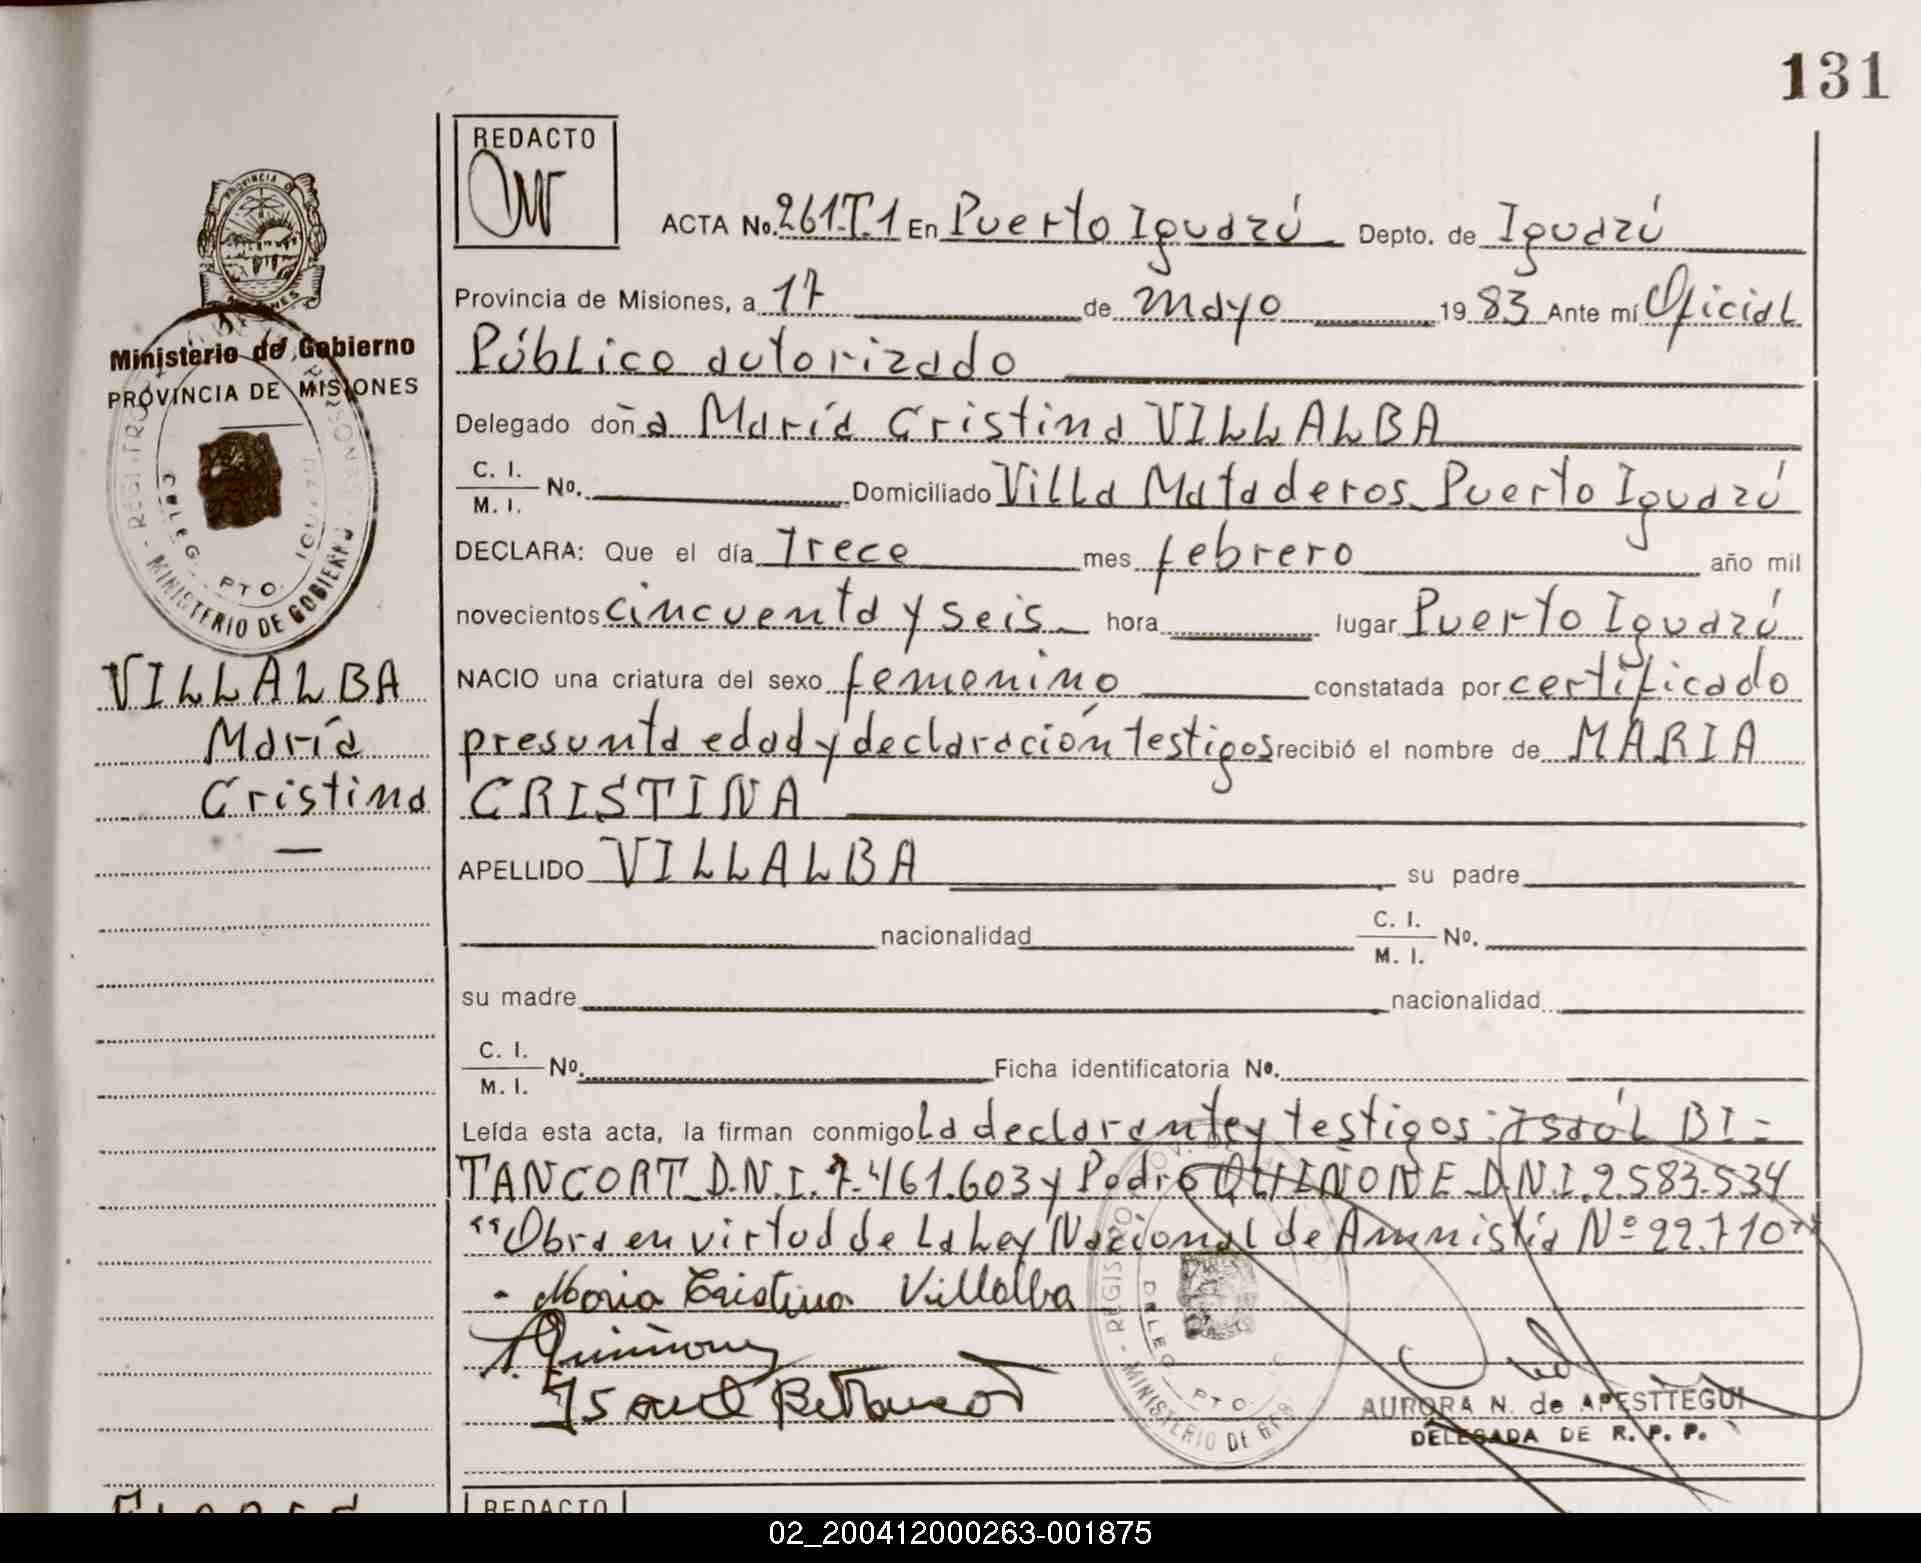 131
REDACTO
ACTA No. 261-T.1 En Puerto Iguazú Depto. de Iguazú
Provincia de Misiones, a 17 de mayo 1983 Ante mí Oficial
Público autorizado
Ministerio de Gobierno
PROVINCIA DE MISIONES
Delegado doña María Cristina VILLALBA
C. I.
M. I. No. Domiciliado Villa Mataderos Puerto Iguazú
DECLARA: Que el día Trece mes febrero año mil
novecientos cincuenta y seis hora lugar Puerto Iguazú
MINISTERIO DE GOBIERNO
DELEG. PTO. IGUAZU
VILLALBA
María
Cristina
NACIO una criatura del sexo femenino constatada por certificado
presunta edad y declaración testigos recibió el nombre de MARIA
CRISTINA
APELLIDO VILLALBA su padre
nacionalidad C. I.
M. I. No.
su madre nacionalidad
C. I.
M. I. No. Ficha identificatoria No.
Leída esta acta, la firman conmigo La declarante y testigos: Isaúl BI-
TANCORT D.N.I. 7.461.603 y Pedro QUIÑONE D.N.I. 2.583.534
"Obra en virtud de La Ley Nacional de Amnistía Nº 22.710"
Maria Cristina Villalba
Quiñone
Isaul Betancort
MINISTERIO DE GOB
DELEG. PTO.
AURORA N. de APESTTEGUI
DELEGADA DE R. P. P.
REDACTO
02_200412000263-001875